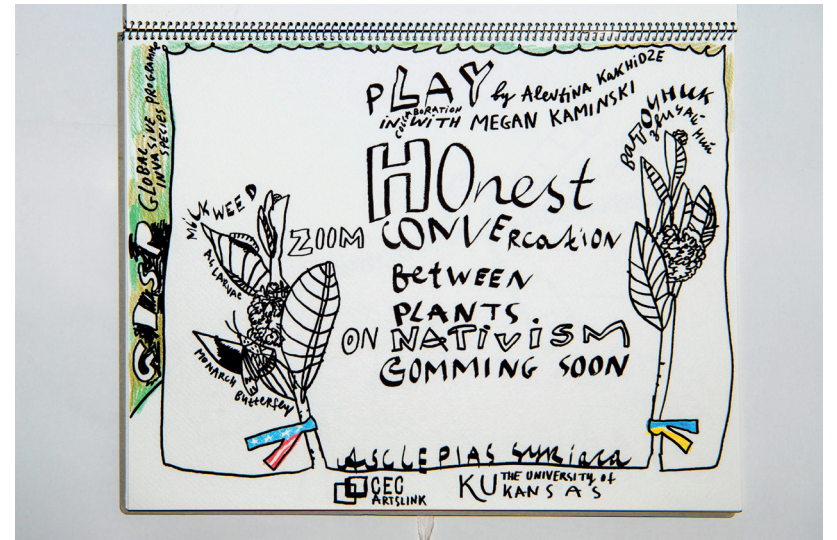 GLOBAL
INVASIVE PROGRAMME
SPECIES
GISP
PLAY by Alevtina KAKHiDZE
IN COLLABORATION WITH MEGAN KAMINSKI
HOnest
ZOOM CONVERcation
BetWEEN
PLANTS.
ON NATiViSM
COMMING SOON
MiLKWEED
AS LARVAE
MONARCH Butterfly
ВАТОЧНИК
ASCLEPIAS SYRiaca
CEC
ARTSLINK
KU THE UNIVERSITY of
KANSAS